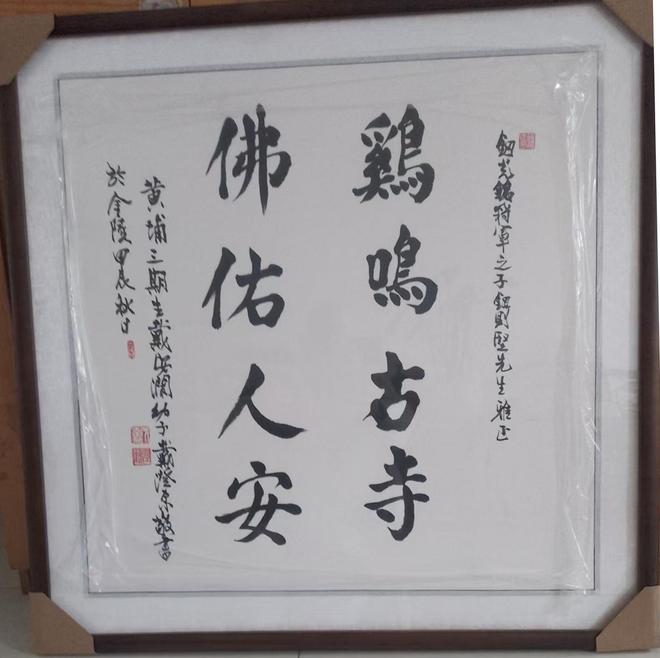 鈕先銘將軍之子鈕則堅先生雅正
鷄鳴古寺
佛佑人安
黄埔三期生戴安瀾幼子戴澄东敬書
於金陵甲辰秋日